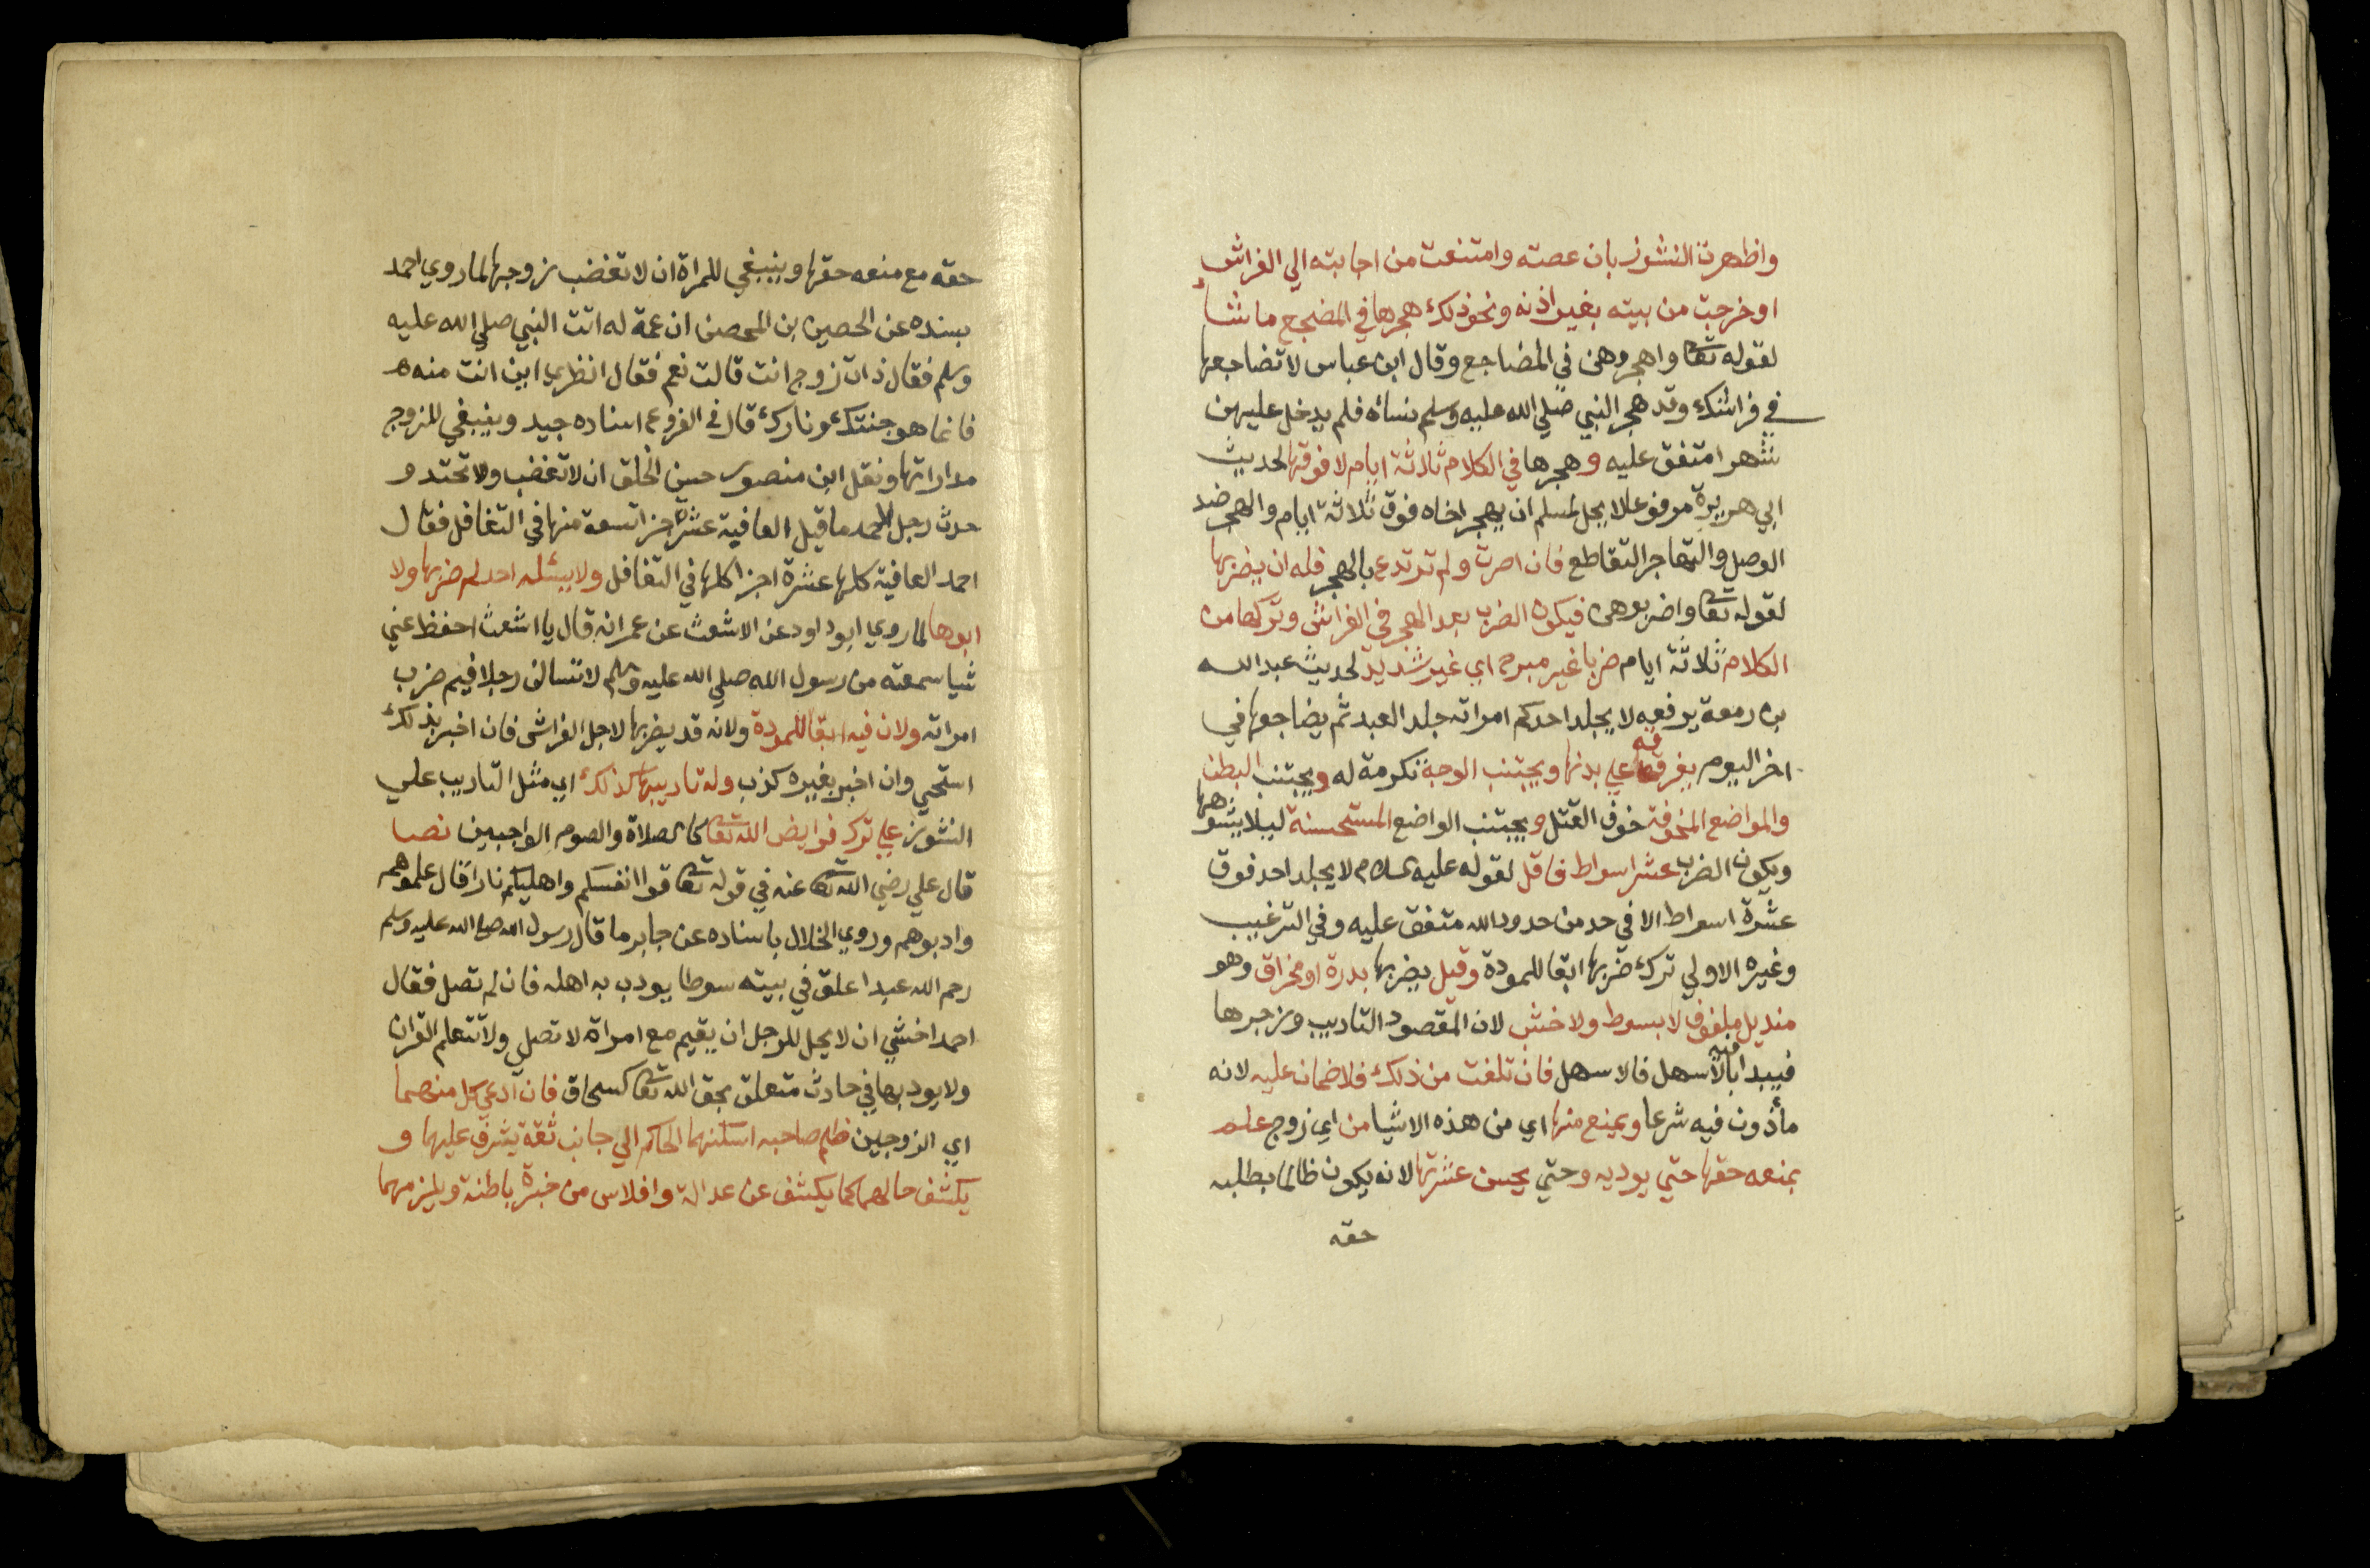 واظهرت النشوز بان عصته وامتنعت من اجابته الي الفراش
او خرجت من بيته بغير اذنه ونحو ذلك هجرها في المضجع ما شاء
لقوله تعا واهجروهن في المضاجع وقال ابن عباس لا تضاجعها
في فراشك وقد هجر النبي صلي الله عليه وسلم نساه فلم يدخل عليهن
شهرا متفق عليه وهجرها في الكلام ثلاثة ايام لا فوقها لحديث
ابي هريرة مرفوعا لا يحل لمسلم ان يهجر اخاه فوق ثلاثة ايام والهجر ضد
الوصل والتهاجر التقاطع فان اصرت ولم ترتدع بالهجر فله ان يضربها
لقوله تعا واضربوهن فيكون الضرب بعد الهجر في الفراش وتركها من
الكلام ثلاثة ايام ضربا غير مبرح اي غير شديد لحديث عبد الله
بن زمعة يرفعه لا يجلد احدكم امراته جلد العبد ثم يضاجعها في
اخر اليوم يفرقه علي بدنها ويجتنب الوجه تكرمة له ويجتنب البطن
والمواضع المخوفة خوف القتل ويجتنب المواضع المستحسنة ليلا يشوهها
ويكون الضرب عشر اسواط فاقل لقوله عليه السلام لا يجلد احد فوق
عشرة اسواط الا في حد من حدود الله متفق عليه وفي الترغيب
وغيره الاولي ترك ضربها ابقا للمودة وقيل يضربها بدرة او مخراق وهو
منديل ملفوف لا بسوط ولا خشب لان المقصود التاديب وزجرها
فيبدا فيه بالاسهل فالاسهل فان تلفت من ذلك فلا ضمان عليه لانه
مأذون فيه شرعا ويمنع منها اي من هذه الاشيا من اي زوج علم
بمنعه حقها حتي يوديه وحتي يحسن عشرتها لانه يكون ظالما بطلبه
حقه
حقه مع منعه حقها وينبغي للمراة ان لا تغضب زوجها لما روي احمد
بسنده عن الحصين بن المحصن ان عمة له اتت النبي صلي الله عليه
وسلم فقال ذات زوج انت قالت نعم فقال انظري اين انت منه
فانما هو جنتك ونارك قال في الفروع اسناده جيد وينبغي للزوج
مداراتها ونقل ابن منصور حسن الخلق ان لا تغضب ولا تحتد و
حدث رجل لاحمد ما قيل العافية عشرة اجزا تسعة منها في التغافل فقال
احمد العافية كلها عشرة اجزا كلها في التغافل ولا يسئله احد لم ضربها ولا
ابوها لما روي ابو داود عن الاشعث عن عمر انه قال يا اشعث احفظ عني
شيا سمعته من رسول الله صلي الله عليه وسلم لا تسالن رجلا فيم ضرب
امراته ولان فيه ابقا للمودة ولانه قد يضربها لاجل الفراش فان اخبر بذلك
استحي وان اخبر بغيره كذب وله تاديبها كذلك اي مثل التاديب علي
النشوز علي ترك فرايض الله تعا كالصلاة والصوم الواجبين نصا
قال علي رضي الله تعا عنه في قوله تعا قوا انفسكم واهليكم نارا قال علموهم
وادبوهم وروي الخلال باسناده عن جابر ما قال رسول الله صلي الله عليه وسلم
رحم الله عبدا علق في بيته سوطا يودب به اهله فان لم تصل فقال
احمد اخشي ان لا يحل للرجل ان يقيم مع امراة لا تصلي ولا تتعلم القران
ولا يودبها في حادث متعلق بحق الله تعا كسحاق فان ادعي كل منهما
اي الزوجين ظلم صاحبه اسكنهما الحاكم الي جانب ثقة يشرف عليهما و
يكشف حالهما كما يكشف عن عدالة وافلاس من خبرة باطنة ويلزمهما